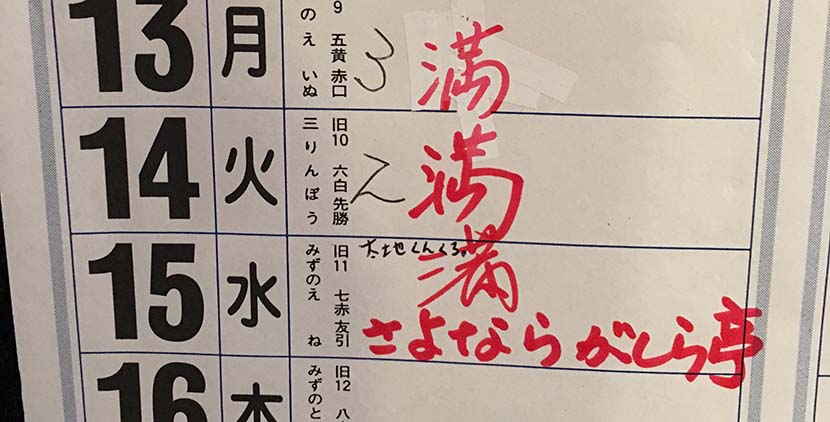 13 月 9 五黄 赤口 のえ いぬ 3 満
14 火 旧10 六白 先勝 三りんぼう 2 満
15 水 旧11 七赤 友引 みずのえ ね 大地くんくる。 満
さよならがしら亭
16 木 旧12 八 みずのと